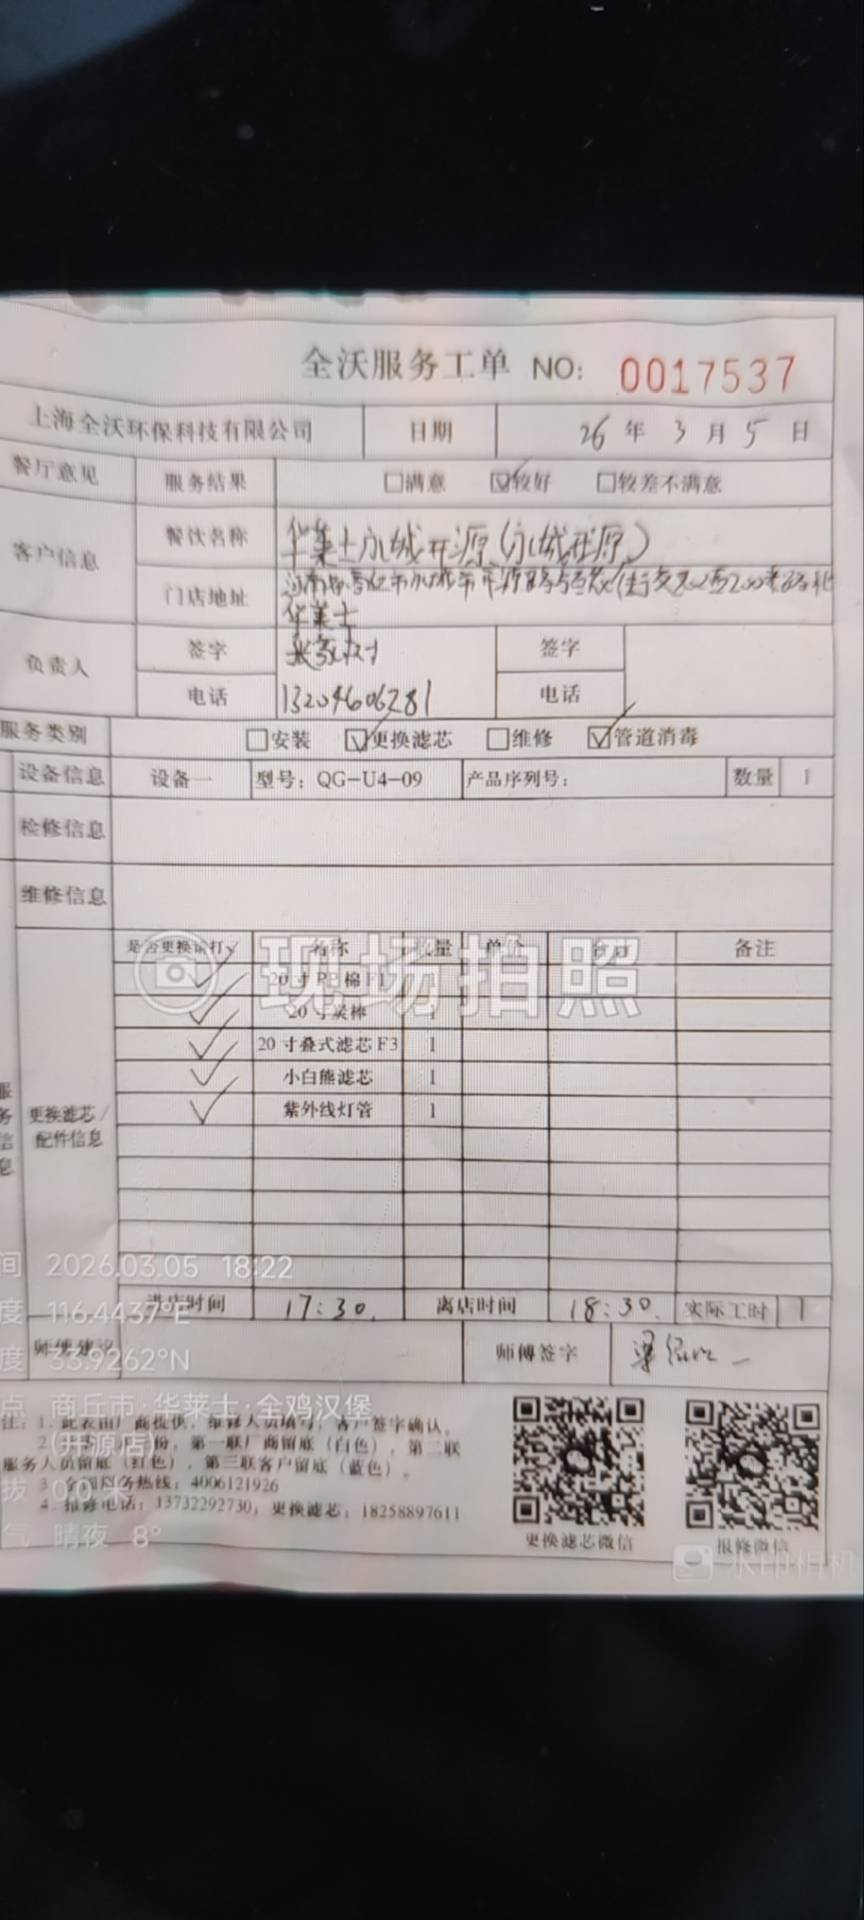 全沃服务工单 NO: 0017537
上海全沃环保科技有限公司 日期 26 年 3 月 5 日
餐厅意见 服务结果 □满意 ☑较好 □较差不满意
客户信息 餐饮名称 华莱士永城开源(永城开源)
门店地址 河南省商丘市永城市
华莱士
负责人 签字 签字
电话 13204606281 电话
服务类别 □安装 ☑更换滤芯 □维修 ☑管道消毒
设备信息 设备一 型号: QG-U4-09 产品序列号: 数量 1
检修信息
维修信息
是否更换请打√ 名称 数量 单价 合计 备注
现场拍照
√ 20寸PP棉F1
√ 20寸炭棒 1
√ 20寸叠式滤芯F3 1
√ 小白熊滤芯 1
√ 紫外线灯管 1
服务信息 更换滤芯/
配件信息
间 2026.03.05 18:22
进店时间 17:30. 离店时间 18:30. 实际工时 1
度 116.4437°E
师傅建议 师傅签字
度 33.9262°N
点 商丘市·华莱士·全鸡汉堡
(开源店)
注: 1. 此表由厂商提供, 维修人员填写, 客户签字确认。
份, 第一联厂商留底 (白色), 第二联
服务人员留底 (红色), 第三联客户留底 (蓝色)。
3. 全国服务热线: 4006121926
拔 0.0 米
4. 报修电话: 13732292730, 更换滤芯: 18258897611
气 晴夜 8°
更换滤芯微信 报修微信
水印相机